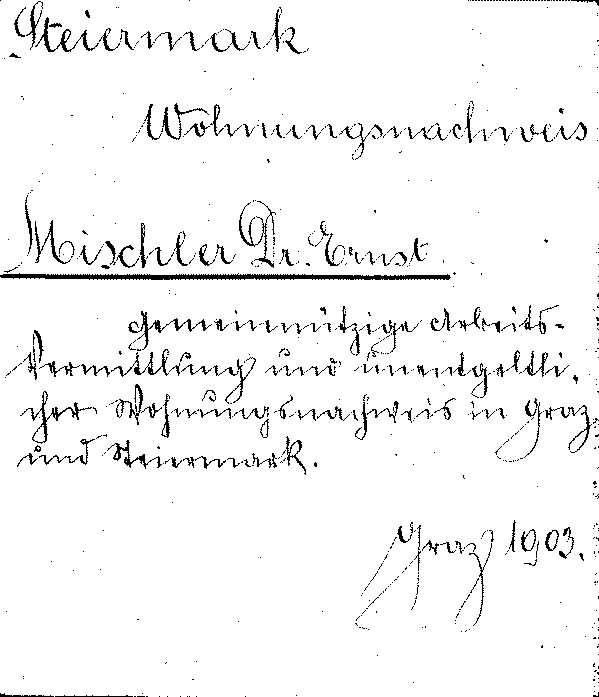 Steiermark
Wohnungsnachweis
Mischler Dr. Ernst.
Gemeinnützige Arbeits-
Vermittlung und unentgeltli-
cher Wohnungsnachweis in Graz
und Steiermark.
Graz 1903.